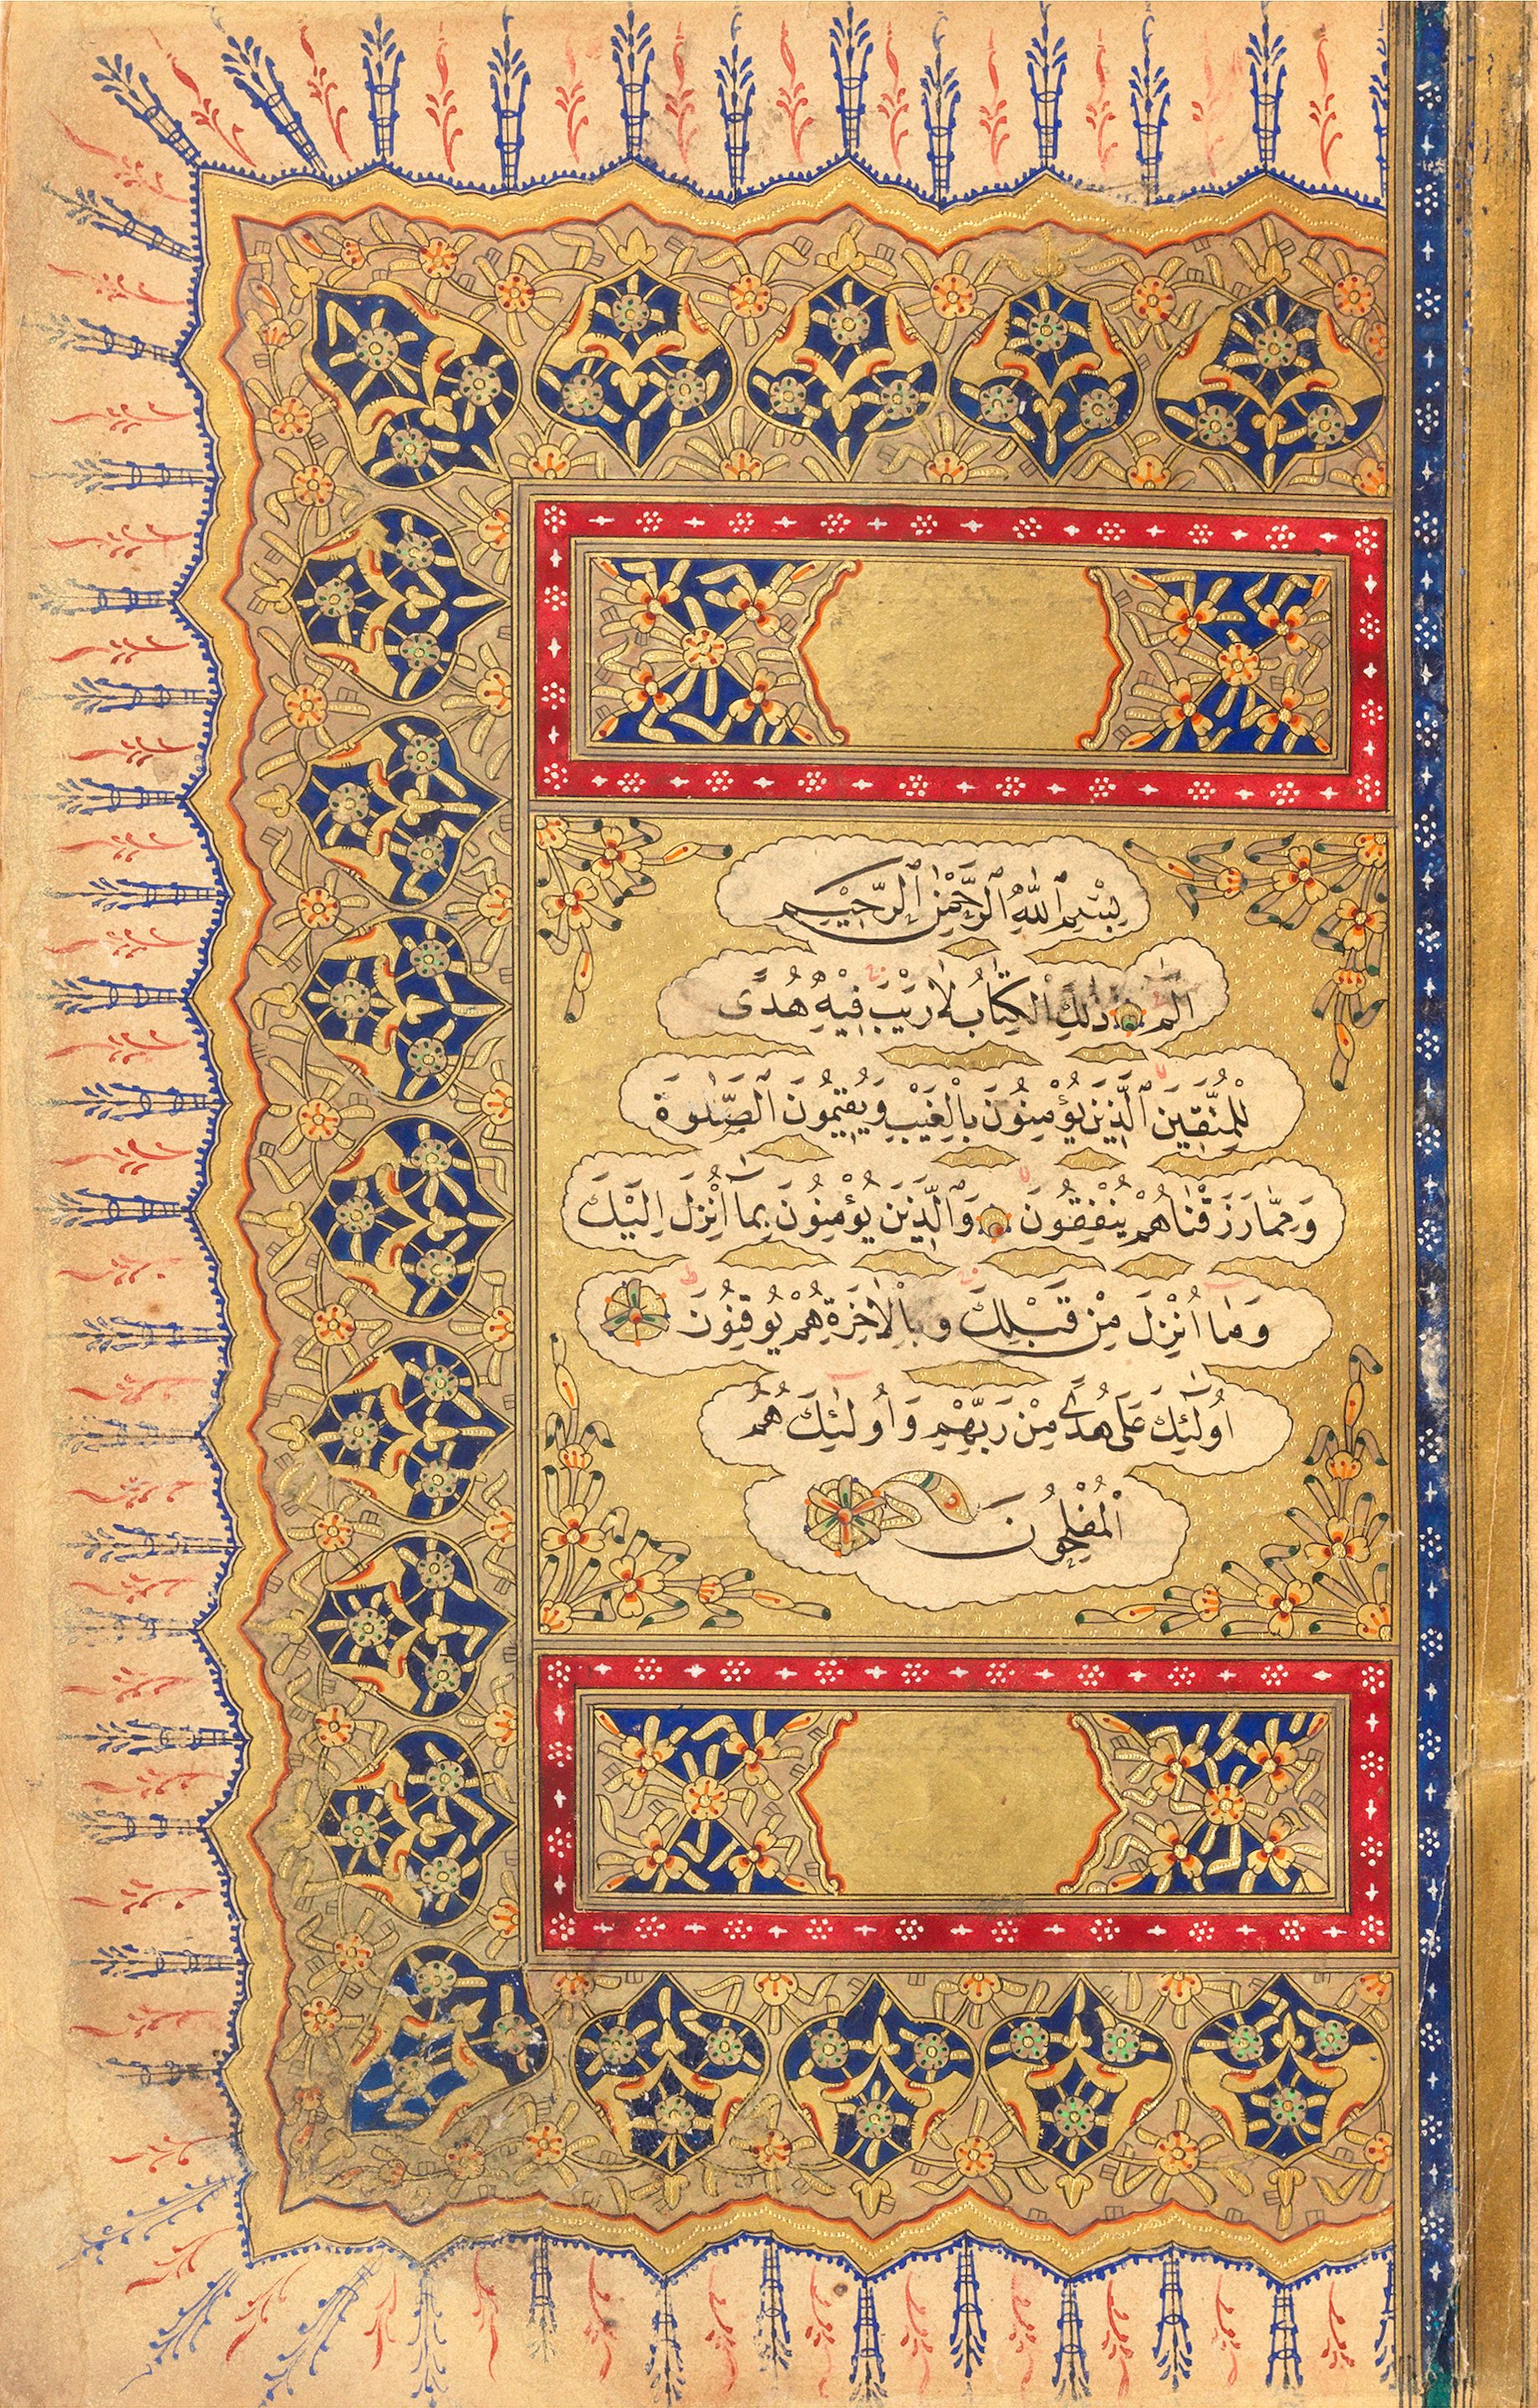 بِسْمِ ٱللّٰهِ ٱلرَّحْمٰنِ ٱلرَّحِيْمِ
الٓمٓ ذٰلِكَ الْكِتَابُ لَا رَيْبَ فِيْهِ هُدًى
لِلْمُتَّقِينَ ٱلَّذِينَ يُؤْمِنُونَ بِالْغَيْبِ وَيُقِيمُونَ ٱلصَّلٰوةَ
وَمِمَّا رَزَقْنَاهُمْ يُنْفِقُونَ وَٱلَّذِينَ يُؤْمِنُونَ بِمَٓا اُنْزِلَ اِلَيْكَ
وَمَٓا اُنْزِلَ مِنْ قَبْلِكَ وَبِالْاٰخِرَةِ هُمْ يُوقِنُونَ
اُولٰٓئِكَ عَلٰى هُدًى مِنْ رَبِّهِمْ وَاُولٰٓئِكَ هُمُ
الْمُفْلِحُونَ